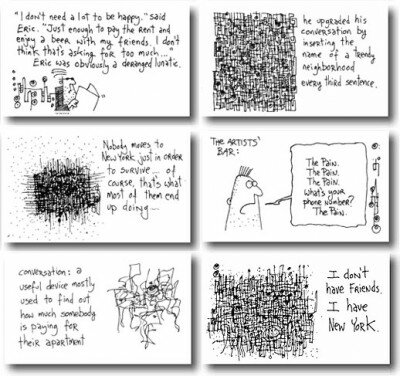 "I don't need a lot to be happy," said
Eric. "Just enough to pay the rent and
enjoy a beer with my friends. I don't
think that's asking for too much..."
Eric was obviously a deranged lunatic.
he upgraded his
conversation by
inserting the
name of a trendy
neighborhood
every third sentence.
Nobody moves to
New York just in order
to survive... of
course, that's what
most of them end
up doing...
THE ARTISTS'
BAR:
The Pain.
The Pain.
The Pain.
What's your
phone number?
The Pain.
conversation: a
useful device mostly
used to find out
how much somebody
is paying for
their apartment
I don't
have friends.
I have
New York.